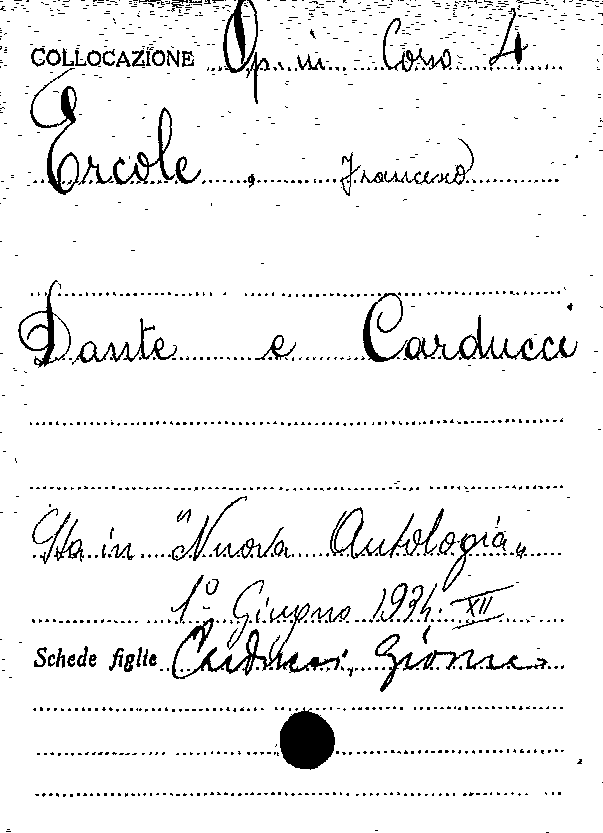 COLLOCAZIONE Op. in Corso 4
Ercole, Francesco
Dante e Carducci
Sta in "Nuova Antologia"
1º Giugno 1934. XII
Schede figlie Carducci, Giosue